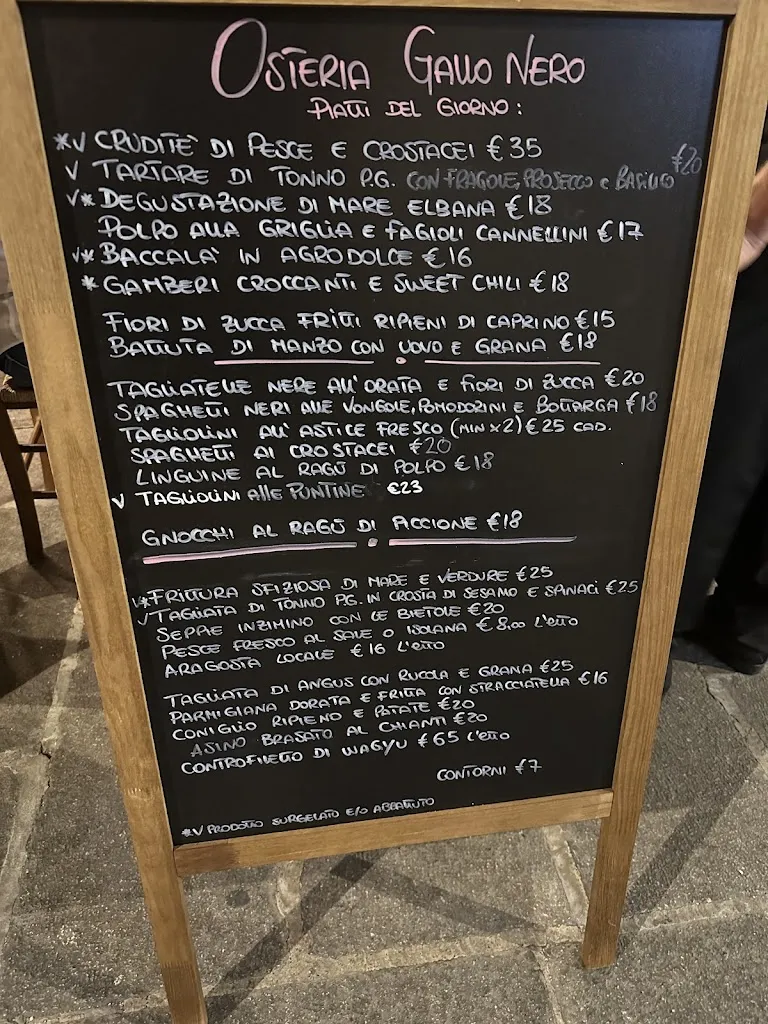 OSTERIA GALLO NERO
PIATTI DEL GIORNO:
*V CRUDITE' DI PESCE E CROSTACEI €35
V TARTARE DI TONNO P.G. CON FRAGOLE, PROSECCO e BASILICO €20
V* DEGUSTAZIONE DI MARE ELBANA €18
POLPO ALLA GRIGLIA E FAGIOLI CANNELLINI €17
V* BACCALA' IN AGRODOLCE €16
* GAMBERI CROCCANTI E SWEET CHILI €18
FIORI DI ZUCCA FRITTI RIPIENI DI CAPRINO €15
BATTUTA DI MANZO CON UOVO E GRANA €18
TAGLIATELLE NERE ALL'ORATA E FIORI DI ZUCCA €20
SPAGHETTI NERI ALLE VONGOLE, POMODORINI E BOTTARGA €18
TAGLIOLINI ALL'ASTICE FRESCO (MIN x 2) €25 CAD.
SPAGHETTI AI CROSTACEI €20
LINGUINE AL RAGÙ DI POLPO €18
V TAGLIOLINI ALLE PUNTINE €23
GNOCCHI AL RAGÙ DI PICCIONE €18
V* FRITTURA SFIZIOSA DI MARE E VERDURE €25
V TAGLIATA DI TONNO P.G. IN CROSTA DI SESAMO E SPINACI €25
SEPPIE INZIMINO CON LE BIETOLE €20
PESCE FRESCO AL SALE O ISOLANA €8,00 L'ETTO
ARAGOSTA LOCALE €16 L'ETTO
TAGLIATA DI ANGUS CON RUCOLA E GRANA €25
PARMIGIANA DORATA E FRITTA CON STRACCIATELLA €16
CONIGLIO RIPIENO E PATATE €20
ASINO BRASATO AL CHIANTI €20
CONTROFILETTO DI WAGYU €65 L'ETTO
CONTORNI €7
*V PRODOTTO SURGELATO E/O ABBATTUTO